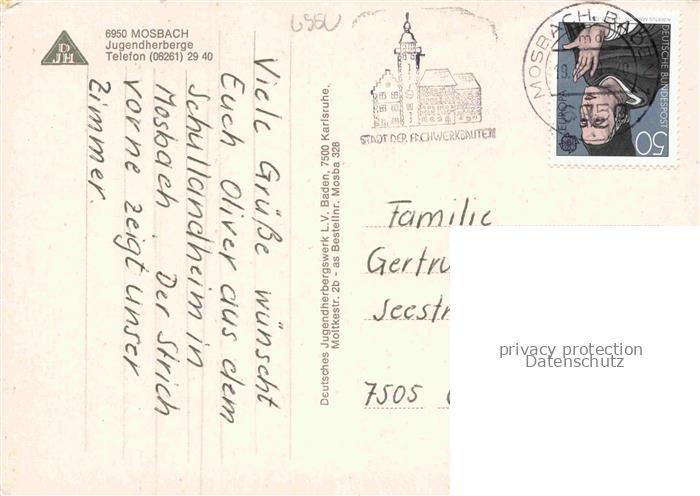 DJH
6950 MOSBACH
Jugendherberge
Telefon (06261) 29 40
6950
Viele Grüße wünscht
Euch Oliver aus dem
Schullandheim in
Mosbach. Der Strich
vorne zeigt unser
Zimmer.
Deutsches Jugendherbergswerk L.V. Baden, 7500 Karlsruhe,
Moltkestr. 2b - as Bestellnr. Mosba 328
STADT DER FACHWERKBAUTEN
MOSBACH, BADEN
DEUTSCHE BUNDESPOST
EUROPA
50
Familie
Gertru
Seestr
7505
privacy protection
Datenschutz